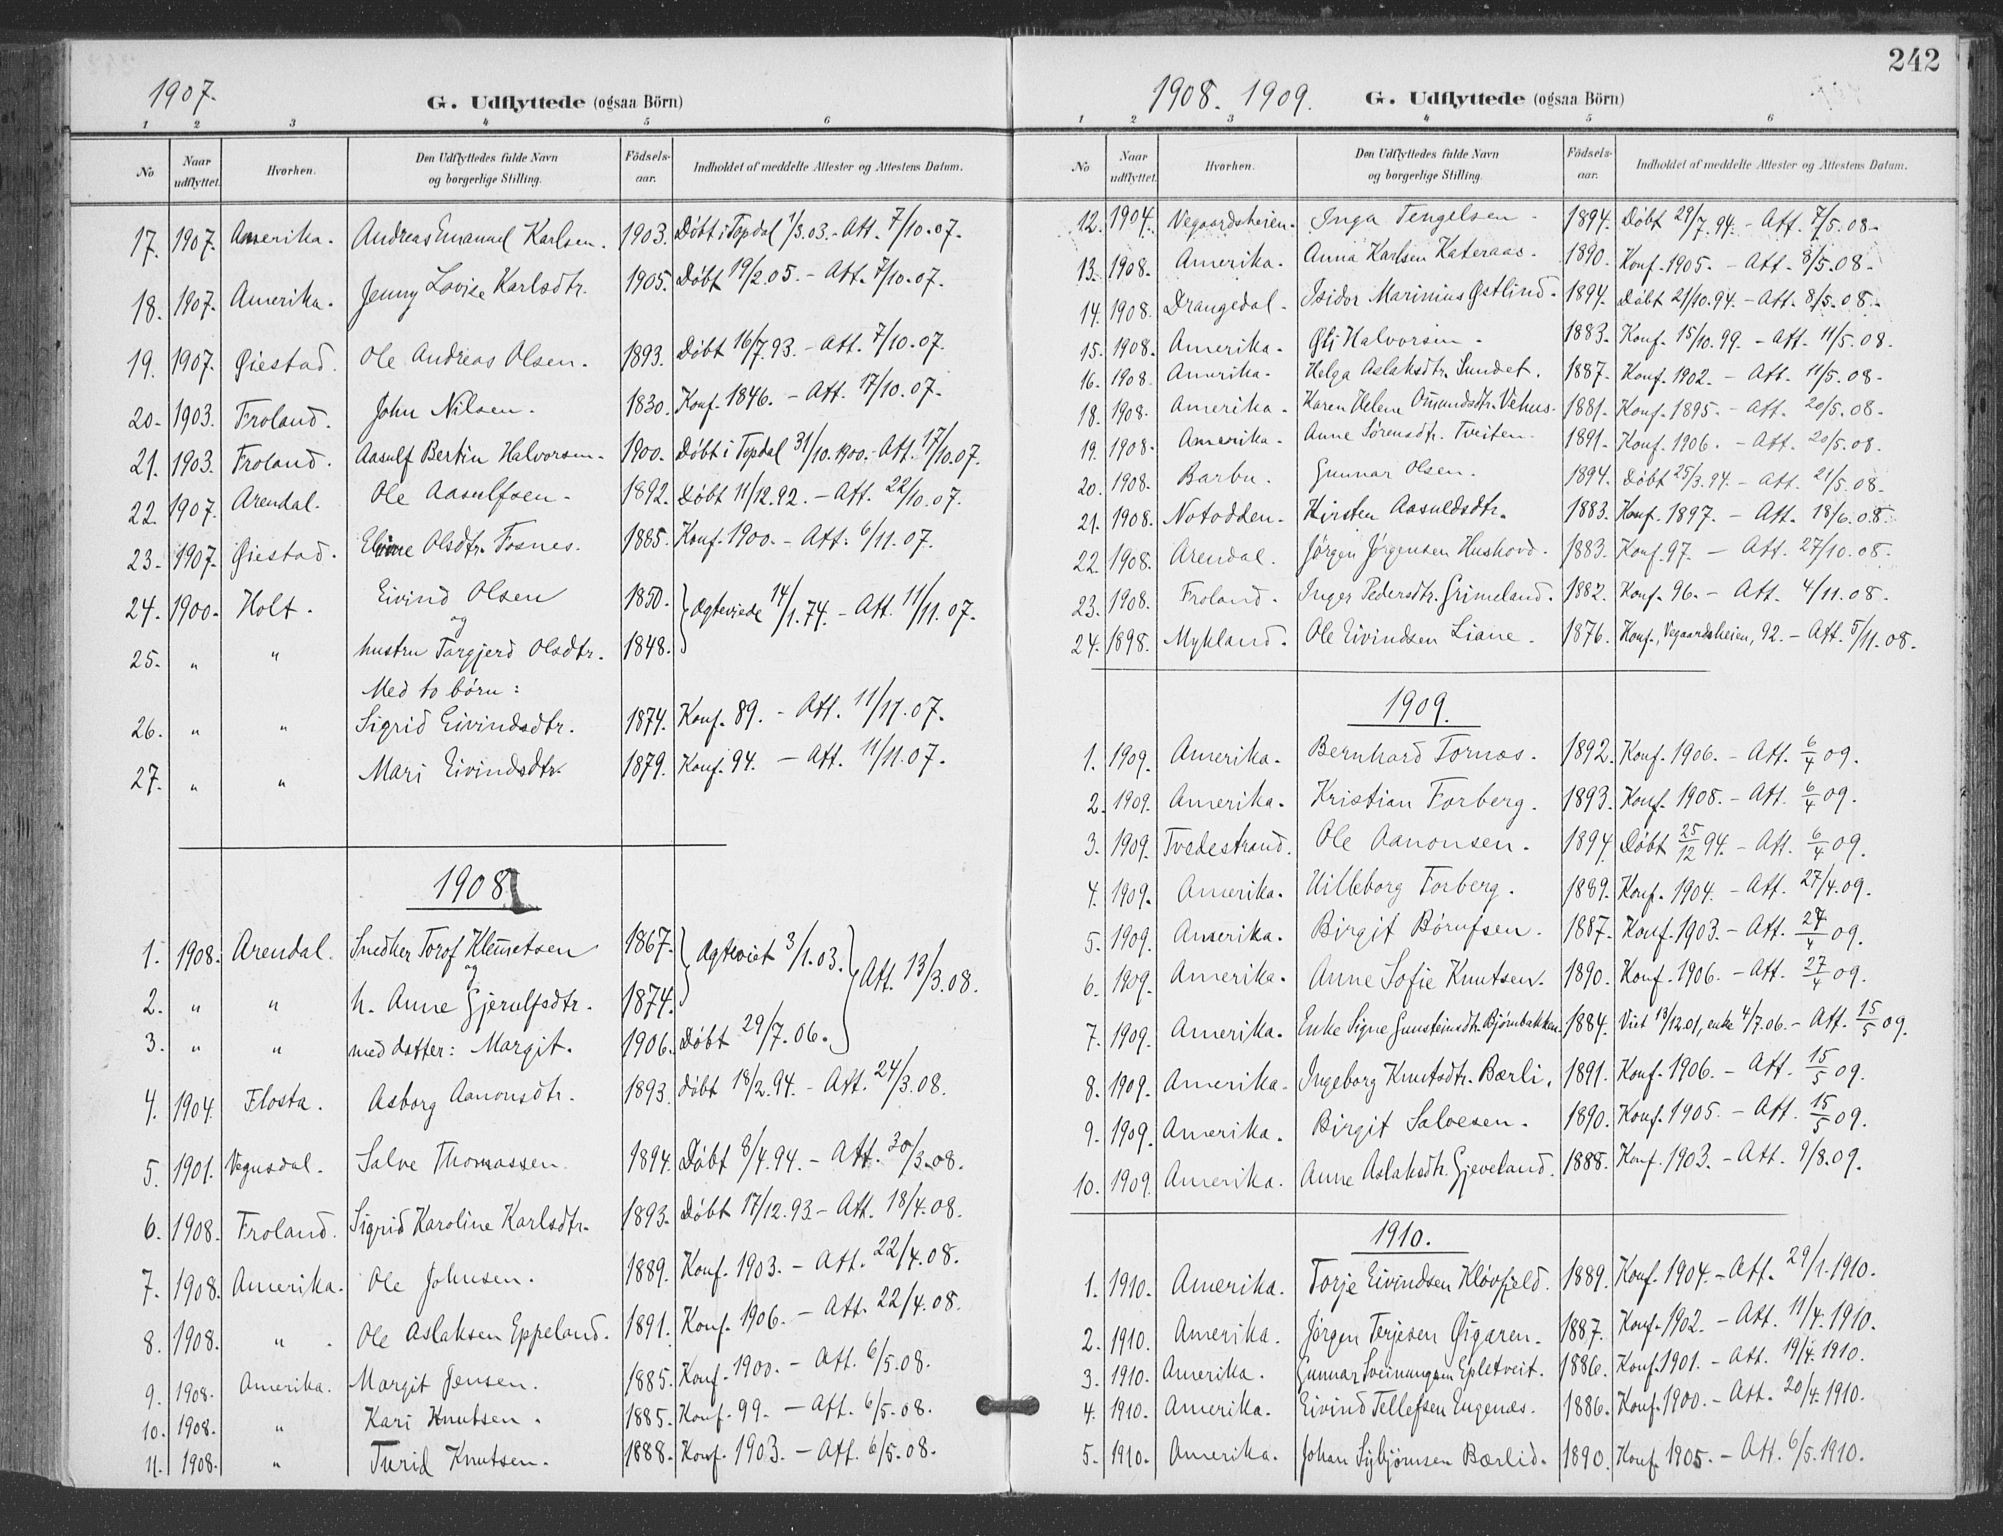 1907.
G. Udflyttede (ogsaa Börn)
1 2 3 4 5 6
No Naar udflyttet. Hvorhen. Den Udflyttedes fulde Navn og borgerlige Stilling. Födsels-aar. Indholdet af meddelte Attester og Attestens Datum.
17. 1907. Amerika. Andreas Emanuel Karlsen. 1903. Døbt i Topdal 1/3.03. - Att. 7/10.07.
18. 1907. Amerika. Jenny Lovise Karlsdtr. 1905. Døbt 19/2.05. - Att. 7/10.07.
19. 1907. Øiestad. Ole Andreas Olsen. 1893. Døbt 16/7.93. - Att. 7/10.07.
20. 1903. Froland. John Nilsen. 1830. Konf. 1846. - Att. 17/10.07.
21. 1903. Froland. Aasulf Bertin Halvorsen. 1900. Døbt i Topdal 31/10.1900. - Att. 17/10.07.
22. 1907. Arendal. Ole Aasulfsen. 1892. Døbt 11/12.92. - Att. 22/10.07.
23. 1907. Øiestad. Olsdtr. Fosnes. 1885. Konf. 1900. - Att. 6/11.07.
24. 1900. Holt. Eivind Olsen 1850. Ægteviede 14/1.74. - Att. 11/11.07.
og
25. " " hustru Torgjerd Olsdtr. 1848.
Med to börn:
26. " " Sigrid Eivindsdtr. 1874. Konf. 89. - Att. 11/11.07.
27. " " Mari Eivindsdtr. 1879. Konf. 94. - Att. 11/11.07.
1908
1. 1908. Arendal. Snedker Torof Klemetsen 1867. Ægteviet 3/1.03. Att. 13/3.08.
og
2. " " h. Anne Gjerulfsdtr. 1874.
3. " " med datter: Margit. 1906. Døbt 29/7.06.
4. 1904. Flosta. Asborg Aanonsdtr. 1893. Døbt 18/2.94. - Att. 24/3.08.
5. 1901. Vegusdal. Salve Thomassen. 1894. Døbt 8/4.94. - Att. 30/3.08.
6. 1908. Froland. Sigrid Karoline Karlsdtr. 1893. Døbt 17/12.93. - Att. 18/4.08.
7. 1908. Amerika. Ole Johnsen. 1889. Konf. 1903. - Att. 22/4.08.
8. 1908. " . Ole Aslaksen Eppeland. 1891. Konf. 1906. - Att. 22/4.08.
9. 1908. Amerika. Margit Jensen. 1885. Konf. 1900. - Att. 6/5.08.
10. 1908. " Kari Knutsen. 1885. Konf. 99. - Att. 6/5.08.
11. 1908. " Turid Knutsen. 1888. Konf. 1903. - Att. 6/5.08.
242
1908. 1909.
G. Udflyttede (ogsaa Börn)
1 2 3 4 5 6
No Naar udflyttet. Hvorhen. Den Udflyttedes fulde Navn og borgerlige Stilling. Födsels-aar. Indholdet af meddelte Attester og Attestens Datum.
12. 1904. Vegaardsheien. Inga Tengelsen. 1894. Døbt 29/7.94. - Att. 7/5.08.
13. 1908. Amerika. Anna Karlsen Kateraas. 1890. Konf. 1905. - Att. 8/5.08.
14. 1908. Drangedal. Isidor Marinius Østlind. 1894. Døbt 21/10.94. - Att. 8/5.08.
15. 1908. Amerika. Halvorsen. 1883. Konf. 15/10.99. - Att. 11/5.08.
16. 1908. Amerika. Helga Aslaksdtr. Sundet. 1887. Konf. 1902. - Att. 11/5.08.
18. 1908. Amerika. Karen Helene Omundsdtr. Vehus. 1881. Konf. 1895. - Att. 20/5.08.
19. 1908. Amerika. Anne Sørensdtr. Tveiten. 1891. Konf. 1906. - Att. 20/5.08.
20. 1908. Barbu. Gunnar Olsen. 1894. Døbt 25/3.94. - Att. 21/5.08.
21. 1908. Notodden. Kirsten Aasuldsdtr. 1883. Konf. 1897. - Att. 18/6.08.
22. 1908. Arendal. Jørgen Jørgensen Huskovd. 1883. Konf. 97. - Att. 27/10.08.
23. 1908. Froland. Inger Pedersdtr. Grimeland. 1882. Konf. 96. - Att. 4/11.08.
24. 1898. Mykland. Ole Eivindsen Liane. 1876. Konf., Vegaardsheien, 92. - Att. 5/11.08.
1909.
1. 1909. Amerika. Bernhard Tornæs. 1892. Konf. 1906. - Att. 6/4 09.
2. 1909. Amerika. Kristian Forberg. 1893. Konf. 1908. - Att. 6/4 09.
3. 1909. Tvedestrand. Ole Aanonsen. 1894. Døbt 25/12 94. - Att. 6/4 09.
4. 1909. Amerika. Uilleborg Forberg. 1889. Konf. 1904. - Att. 27/4.09.
5. 1909. Amerika. Birgit Børufsen. 1887. Konf. 1903. - Att. 27/4 09.
6. 1909. Amerika. Anne Sofie Knutsen. 1890. Konf. 1906. - Att. 27/4 09.
7. 1909. Amerika. Enke Signe Gunsteinsdtr. Bjørnbakken. 1884. Viet 13/12.01, enke 4/7.06. - Att. 15/5 09.
8. 1909. Amerika. Ingeborg Knutsdtr. Bærli. 1891. Konf. 1906. - Att. 15/5 09.
9. 1909. Amerika. Birgit Salvesen. 1890. Konf. 1905. - Att. 15/5 09.
10. 1909. Amerika. Anne Aslaksdtr. Gjeveland. 1888. Konf. 1903. - Att. 9/8.09.
1910.
1. 1910. Amerika. Torje Eivindsen Kløvfjeld. 1889. Konf. 1904. - Att. 29/1.1910.
2. 1910. Amerika. Jørgen Terjesen Øigaren. 1887. Konf. 1902. - Att. 11/4.1910.
3. 1910. Amerika. Gunnar Sveinungsen Epletveit. 1886. Konf. 1901. - Att. 19/4.1910.
4. 1910. Amerika. Eivind Tellefsen Engenæs. 1886. Konf. 1900. - Att. 20/4.1910.
5. 1910. Amerika. Johan Sigbjørnsen Bærlid. 1890. Konf. 1905. - Att. 6/5.1910.